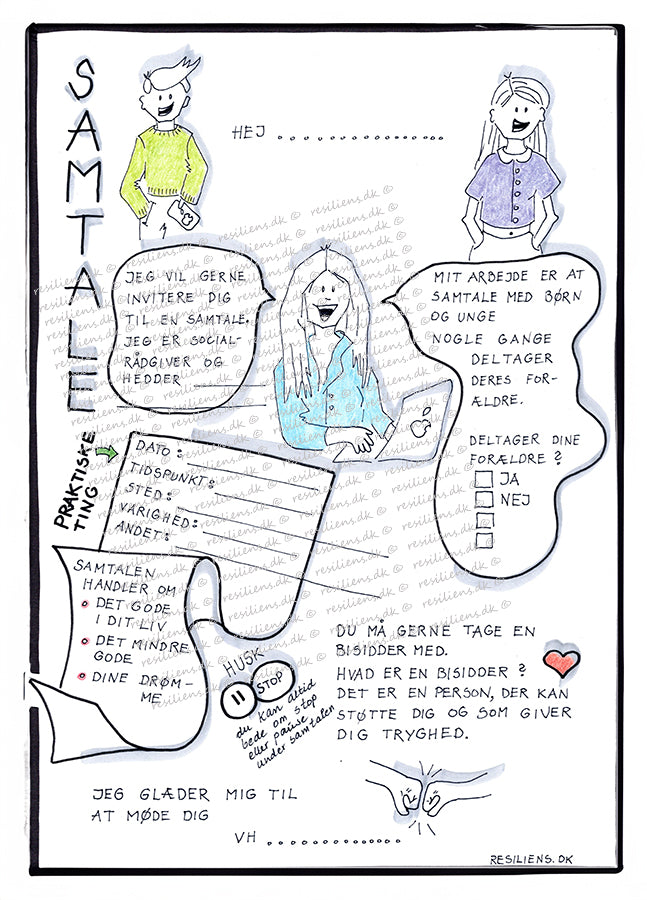 SAMTALE
HEJ ................
JEG VIL GERNE
INVITERE DIG
TIL EN SAMTALE.
JEG ER SOCIAL-
RÅDGIVER OG
HEDDER
MIT ARBEJDE ER AT
SAMTALE MED BØRN
OG UNGE
NOGLE GANGE
DELTAGER
DERES FOR-
ÆLDRE.
DELTAGER DINE
FORÆLDRE?
JA
NEJ
PRAKTISKE
TING
DATO:
TIDSPUNKT:
STED:
VARIGHED:
ANDET:
SAMTALEN
HANDLER OM
DET GODE
I DIT LIV
DET MINDRE
GODE
DINE DRØM-
ME.
HUSK
STOP
du kan altid
bede om stop
eller pause
under samtalen
DU MÅ GERNE TAGE EN
BISIDDER MED.
HVAD ER EN BISIDDER?
DET ER EN PERSON, DER KAN
STØTTE DIG OG SOM GIVER
DIG TRYGHED.
JEG GLÆDER MIG TIL
AT MØDE DIG
VH ..............
RESILIENS.DK
resiliens.dk ©